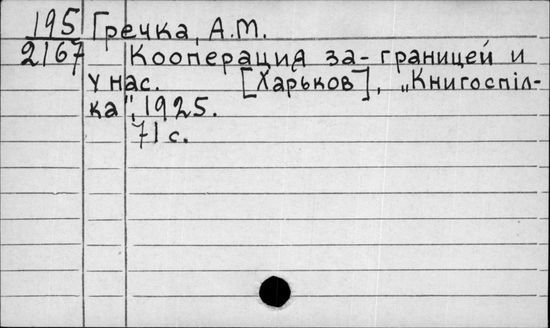 195 Гречка, А.М.
2167 Кооперация за-границей и
у нас. [Харьков], „Книгоспіл-
ка", 1925.
71 с.